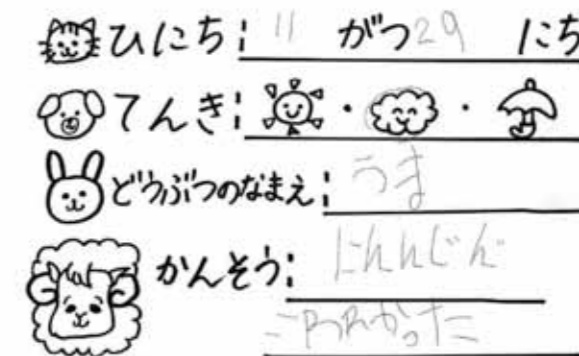 ひにち: 11 がつ29 にち
てんき: ・ ・
どうぶつのなまえ: うま
かんそう: にんんじん